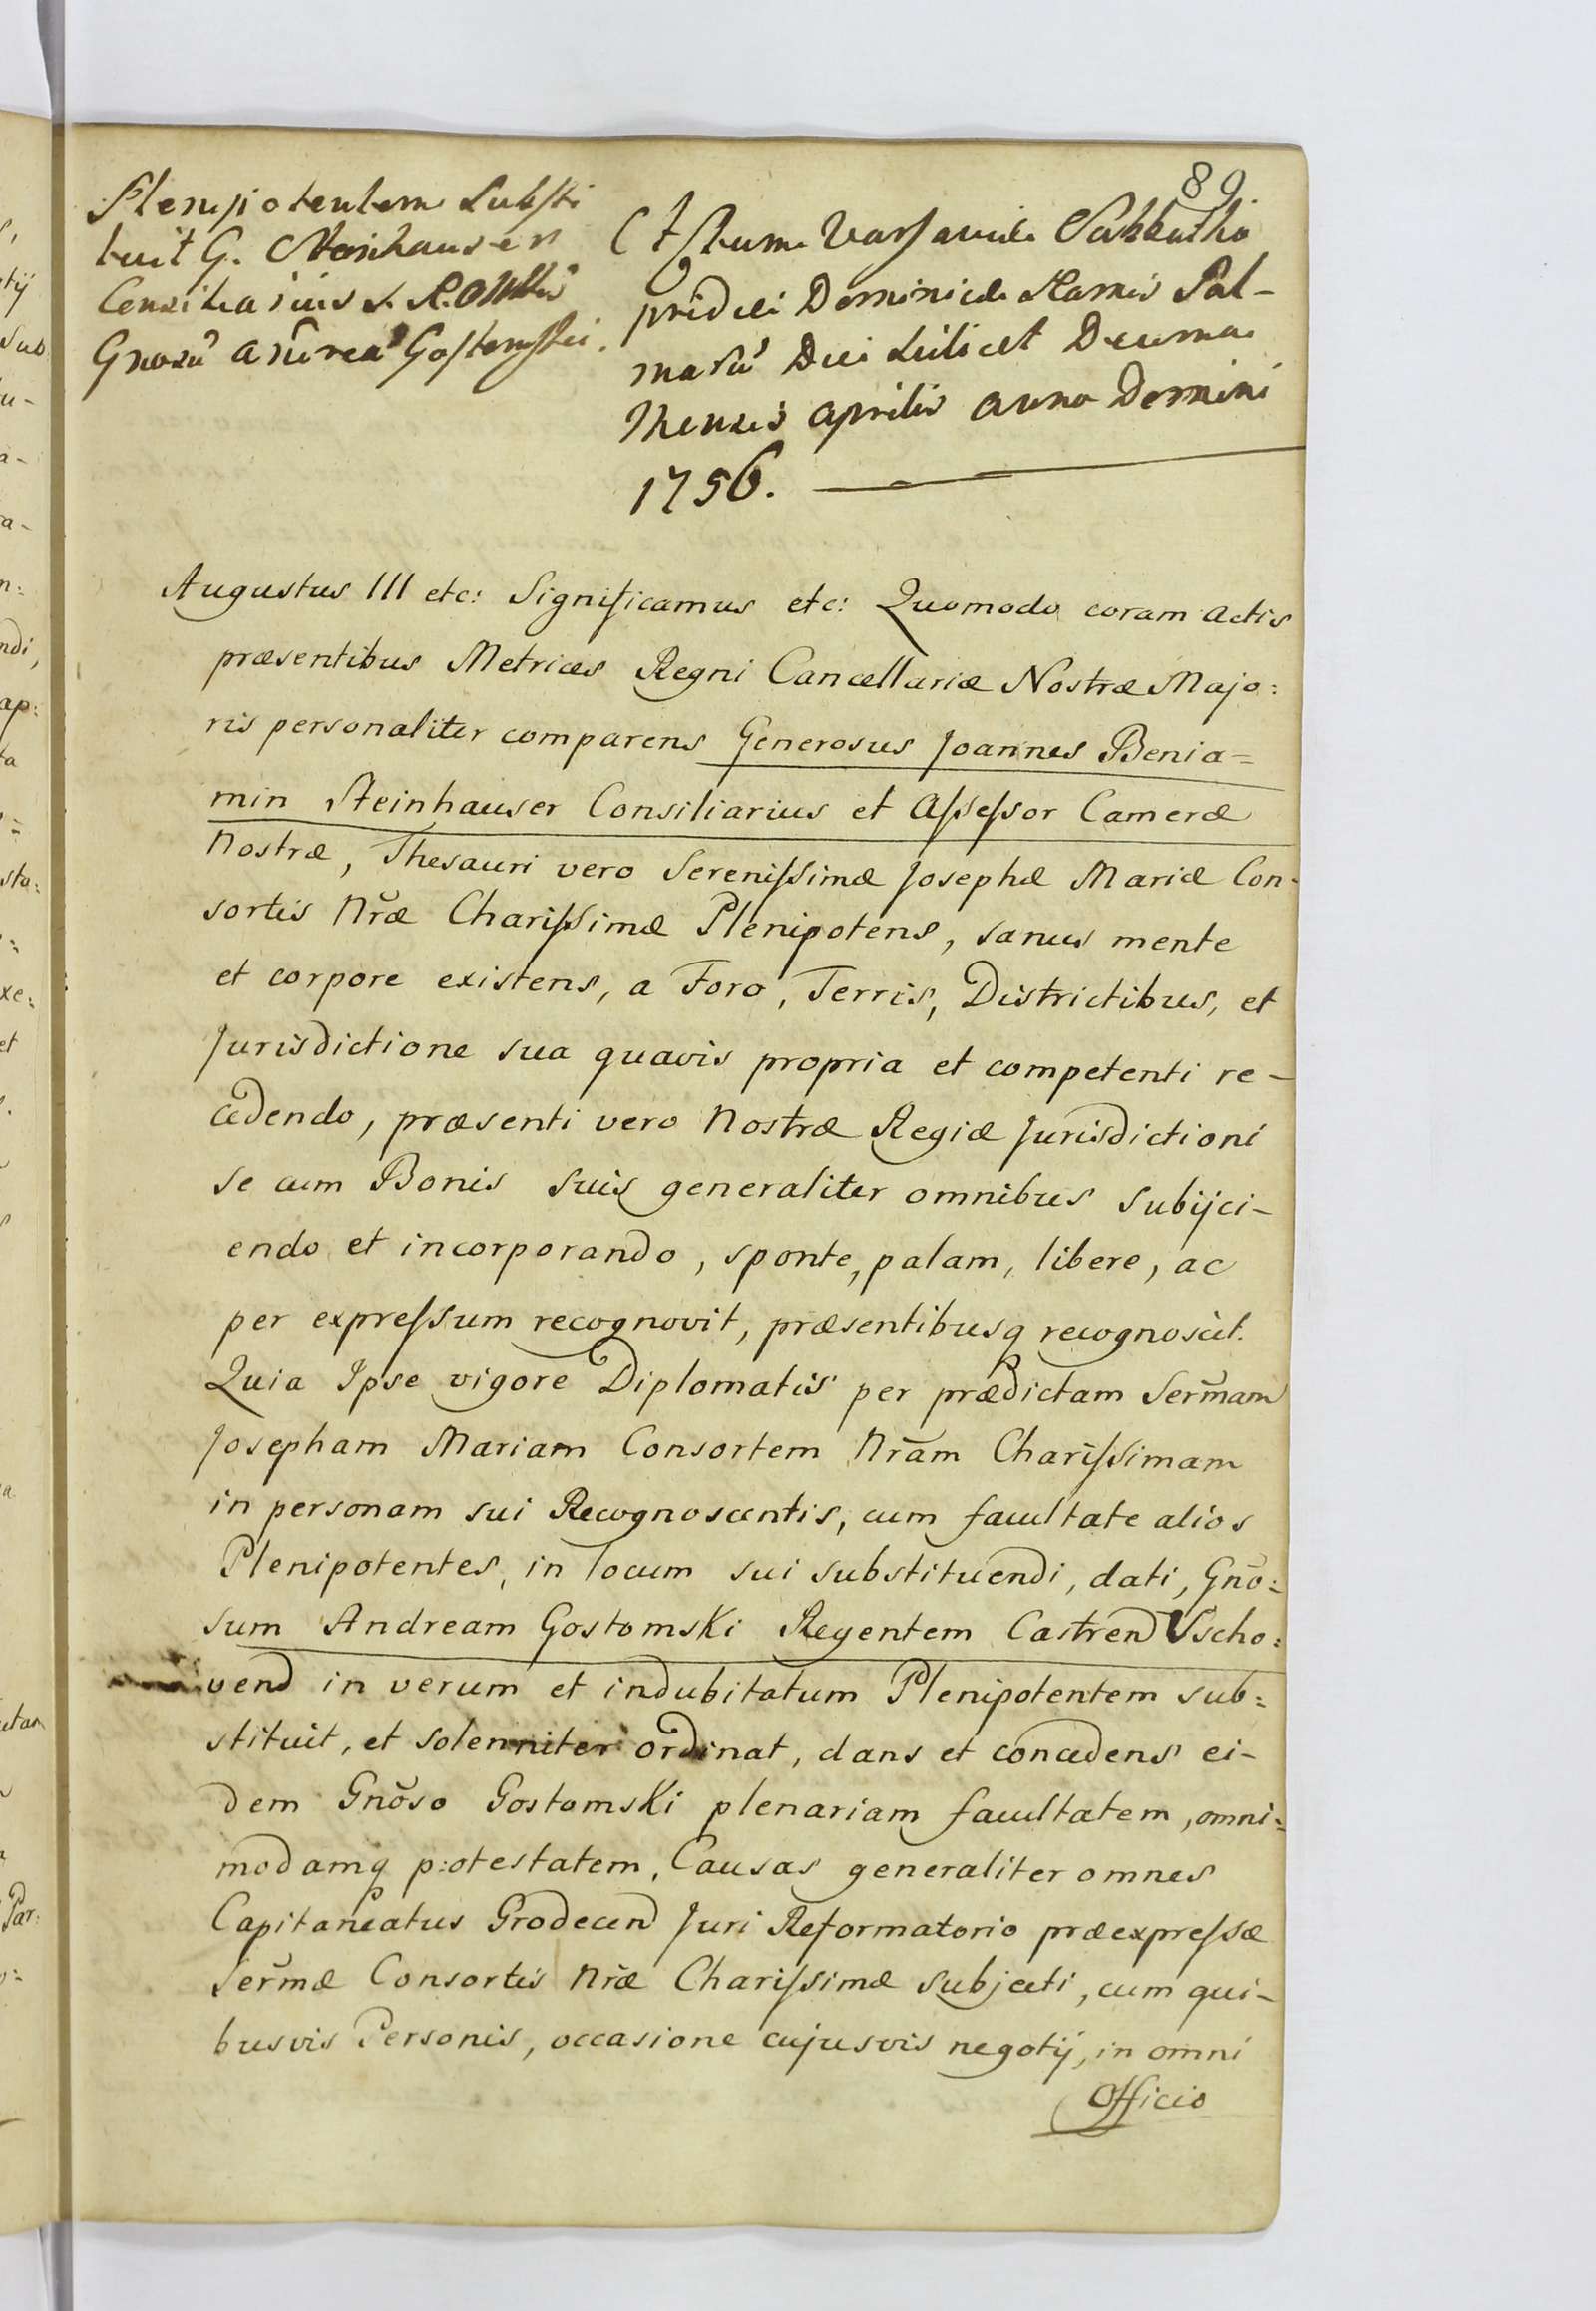 89
Plenipotentem Substi
tuit G. Steinhauser
Consiliarius S. R. Mttis
Gnosū Andreā Gostomski.
Actum Varsaviæ Sabbatho
pridie Dominicæ Ramis Pal-
marū Die scilicet Decima
Mensis Aprilis Anno Domini
1756.
Augustus III etc: Significamus etc: Quomodo coram Actis
præsentibus Metrices Regni Cancellariæ Nostræ Majo:
ris personaliter comparens Generosus Joannes Benia=
min Steinhauser Consiliarius et Assessor Cameræ
Nostræ, Thesauri vero Serenissimæ Josephæ Mariæ Con-
sortis Nr̃æ Charissimæ Plenipotens, sanus mente
et corpore existens, a Foro, Terris, Districtibus, et
Jurisdictione sua quavis propria et competenti re-
cedendo, præsenti vero Nostræ Regiæ Jurisdictioni
se cum Bonis suis generaliter omnibus subijci-
endo et incorporando, sponte, palam, libere, ac
per expressum recognovit, præsentibusq recognoscit.
Quia Ipse vigore Diplomatis per prædictam Serm̃am
Josepham Mariam Consortem Nr̃am Charissimam
in personam sui Recognoscentis, cum facultate alios
Plenipotentes, in locum sui substituendi, dati, Gnõ:
sum Andream Gostomski Regentem Castren Vscho:
ven in verum et indubitatum Plenipotentem sub:
stituit, et solenniter ordinat, dans et concedens ei-
dem Gnõso Gostomski plenariam facultatem, omni:
modamq p:otestatem, Causas generaliter omnes
Capitaneatus Grodecen Juri Reformatorio præexpressæ
Serm̃æ Consortis Nr̃æ Charissimæ subjecti, cum qui-
busvis Personis, occasione cujusvis negotij, in omni
Officio